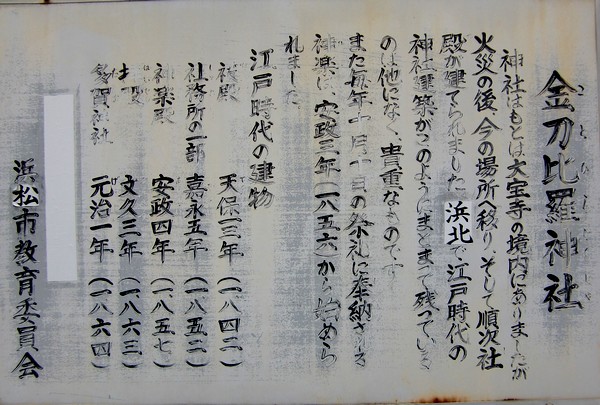 金刀比羅神社
神社はもとは大宝寺の境内にありましたが
火災の後、今の場所へ移り、そして順次社
殿が建てられました。浜北で、江戸時代の
神社建築がこのようにまとまって残っている
のは他になく、貴重なものです
また毎年十月十日の祭礼に奉納される
神楽は、安政三年(一八五六)から始めら
れました
江戸時代の建物
社殿 天保十三年(一八四二)
社務所の一部 嘉永五年(一八五二)
神楽殿 安政四年(一八五七)
文久三年(一八六三)
多賀神社 元治一年(一八六四)
浜松市教育委員会